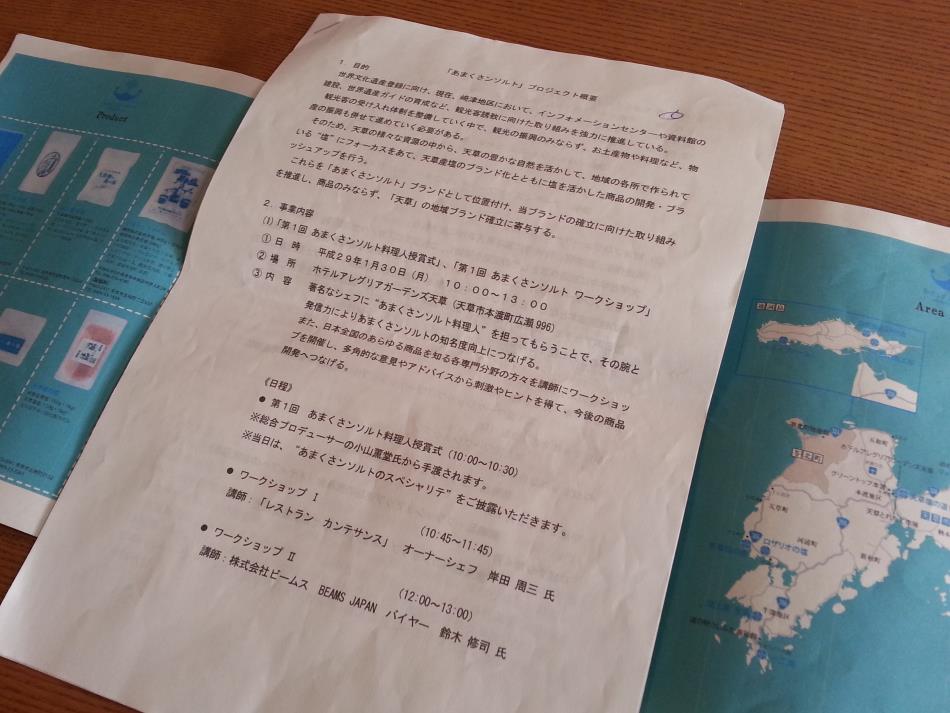 「あまくさンソルト」プロジェクト概要
1. 目的
世界文化遺産登録に向け、現在、崎津地区において、インフォメーションセンターや資料館の
建設、世界遺産ガイドの育成など、観光客誘致に向けた取り組みを強力に推進している。
観光客の受け入れ体制を整備していく中で、観光の振興のみならず、お土産物や料理など、物
産の振興も併せて進めていく必要がある。
そのため、天草の様々な資源の中から、天草の豊かな自然を活かして、地域の各所で作られて
いる“塩”にフォーカスをあて、天草産塩のブランド化とともに塩を活かした商品の開発・ブラ
ッシュアップを行う。
これらを「あまくさンソルト」ブランドとして位置付け、当ブランドの確立に向けた取り組み
を推進し、商品のみならず、「天草」の地域ブランド確立に寄与する。
2. 事業内容
(1)「第1回 あまくさンソルト料理人授賞式」、「第1回 あまくさンソルト ワークショップ」
①日 時 平成29年1月30日（月） 10:00～13:00
②場 所 ホテルアレグリアガーデンズ天草（天草市本渡町広瀬996）
③内 容 著名なシェフに“あまくさンソルト料理人”を担ってもらうことで、その腕と
発信力によりあまくさンソルトの知名度向上につなげる。
また、日本全国のあらゆる商品を知る各専門分野の方々を講師にワークショッ
プを開催し、多角的な意見やアドバイスから刺激やヒントを得て、今後の商品
開発へつなげる。
《日程》
● 第1回 あまくさンソルト料理人授賞式（10:00～10:30）
※総合プロデューサーの小山薫堂氏から手渡されます。
※当日は、“あまくさンソルトのスペシャリテ”をご披露いただきます。
● ワークショップ Ⅰ （10:45～11:45）
講師：「レストラン カンテサンス」 オーナーシェフ 岸田 周三 氏
● ワークショップ Ⅱ （12:00～13:00）
講師：株式会社ビームス BEAMS JAPAN バイヤー 鈴木 修司 氏
Product
Area
五和町
ホテルアレグリアガーデンズ天草
天草町
河浦町
新和町
ロザリオの塩
牛深地区